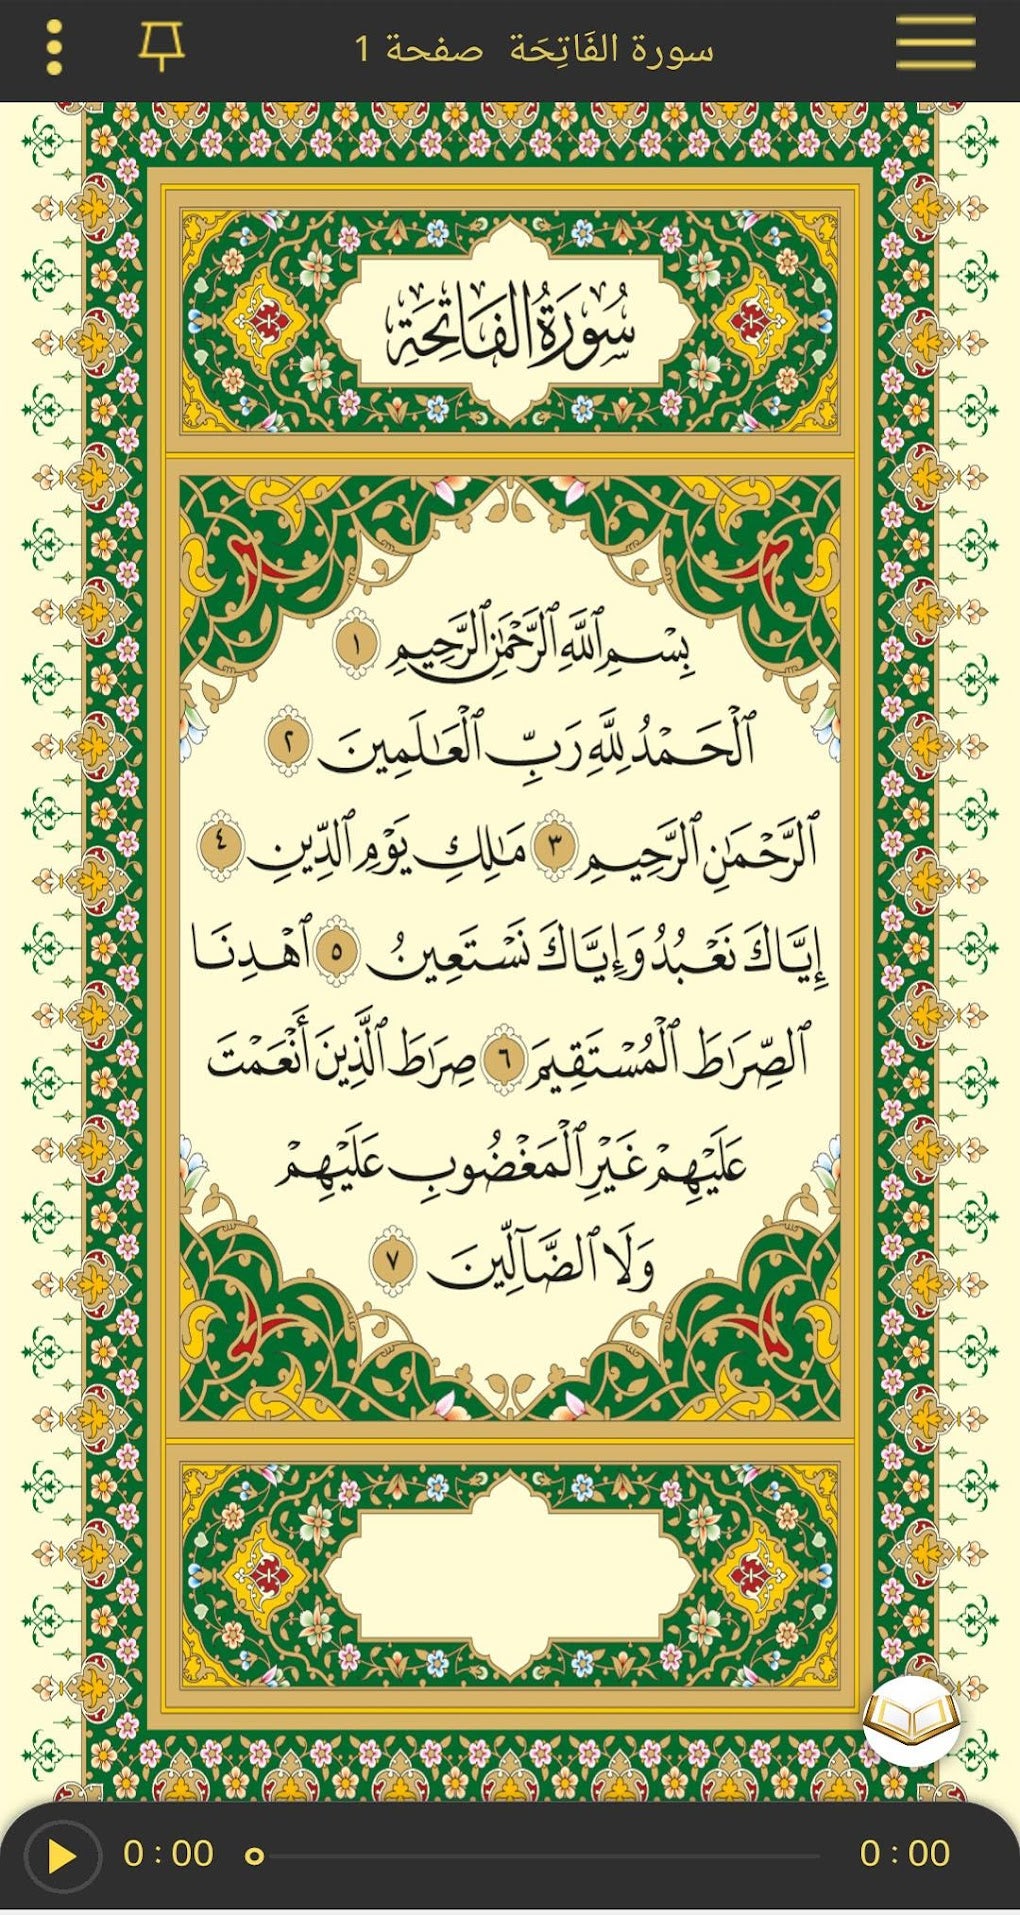 سورة الفَاتِحَة صفحة 1
سُورَةُ الفَاتِحَةِ
بِسْمِ ٱللَّهِ ٱلرَّحْمَٰنِ ٱلرَّحِيمِ ١
ٱلْحَمْدُ لِلَّهِ رَبِّ ٱلْعَٰلَمِينَ ٢
ٱلرَّحْمَٰنِ ٱلرَّحِيمِ ٣ مَٰلِكِ يَوْمِ ٱلدِّينِ ٤
إِيَّاكَ نَعْبُدُ وَإِيَّاكَ نَسْتَعِينُ ٥ ٱهْدِنَا
ٱلصِّرَٰطَ ٱلْمُسْتَقِيمَ ٦ صِرَٰطَ ٱلَّذِينَ أَنْعَمْتَ
عَلَيْهِمْ غَيْرِ ٱلْمَغْضُوبِ عَلَيْهِمْ
وَلَا ٱلضَّآلِّينَ ٧
0:00 0:00